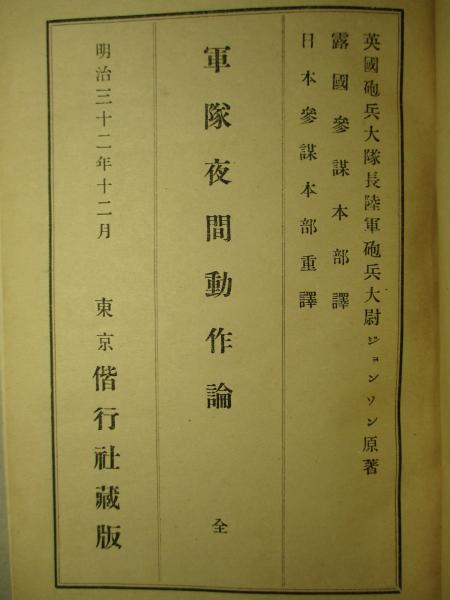 英國砲兵大隊長陸軍砲兵大尉ジョンソン原著
露國參謀本部譯
日本參謀本部重譯
軍隊夜間動作論 全
明治三十二年十二月 東京偕行社藏版